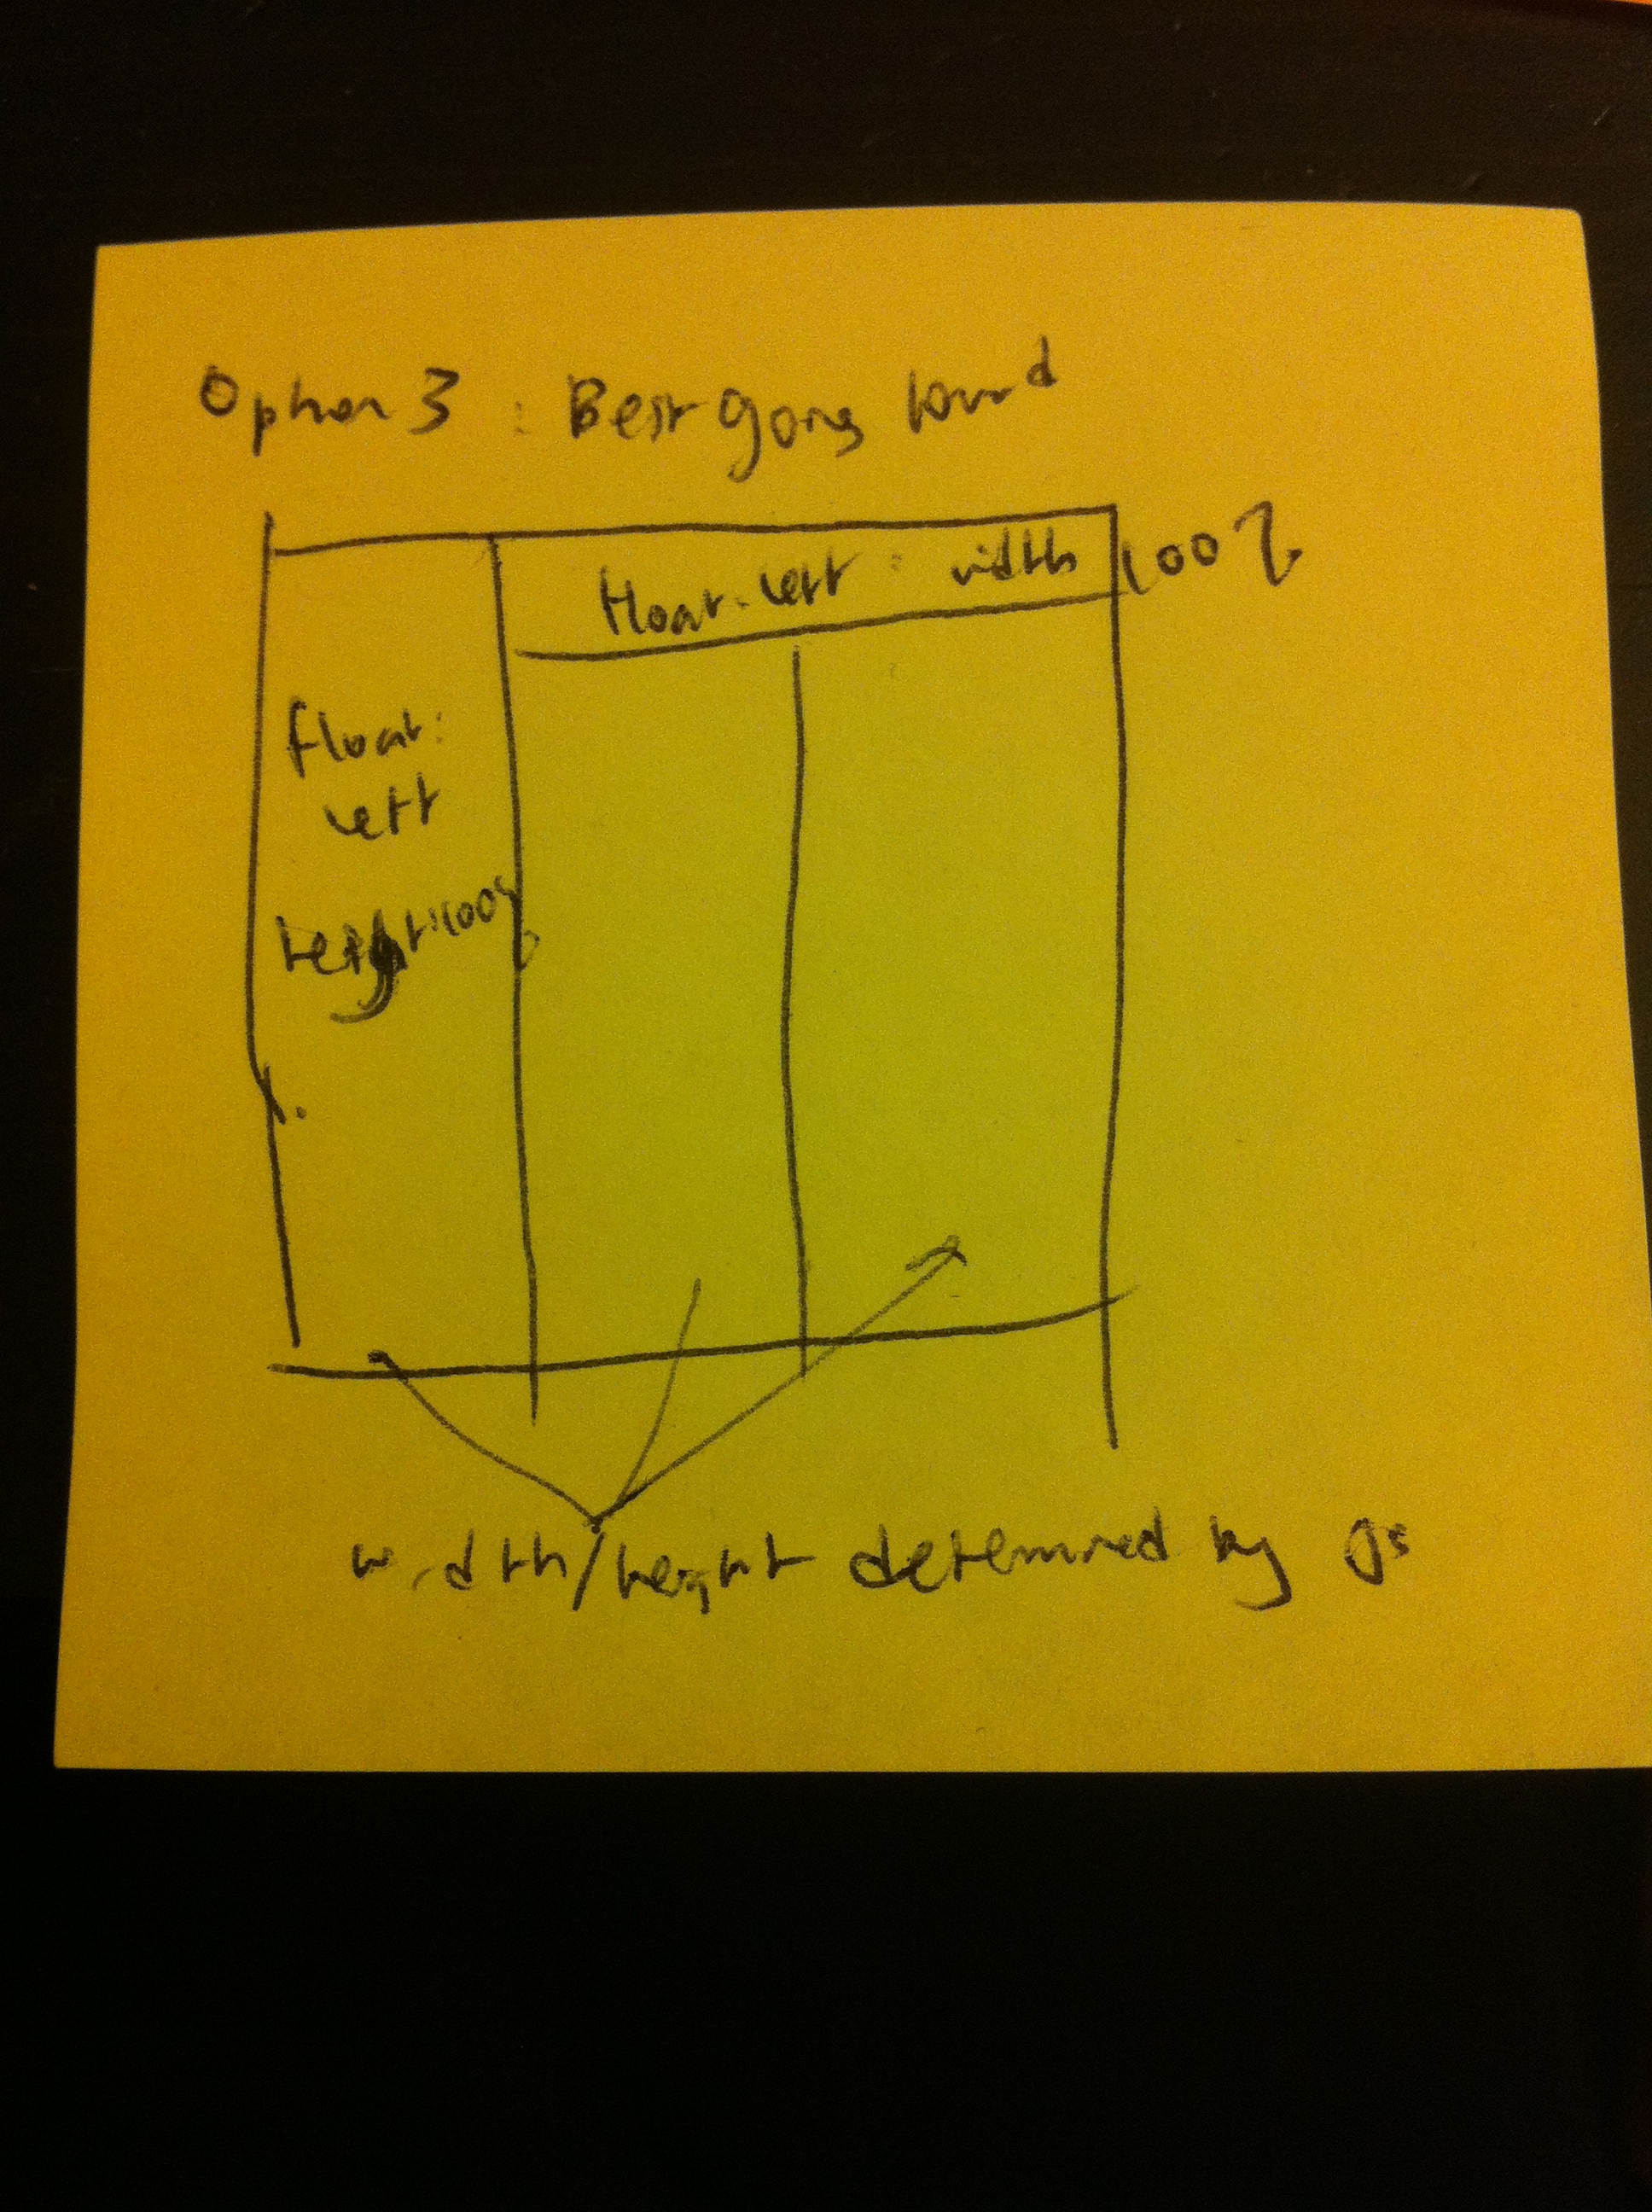 Option 3 : Best going forward
float: left : width 100%
float:
left
height:100%
width/height determined by JS